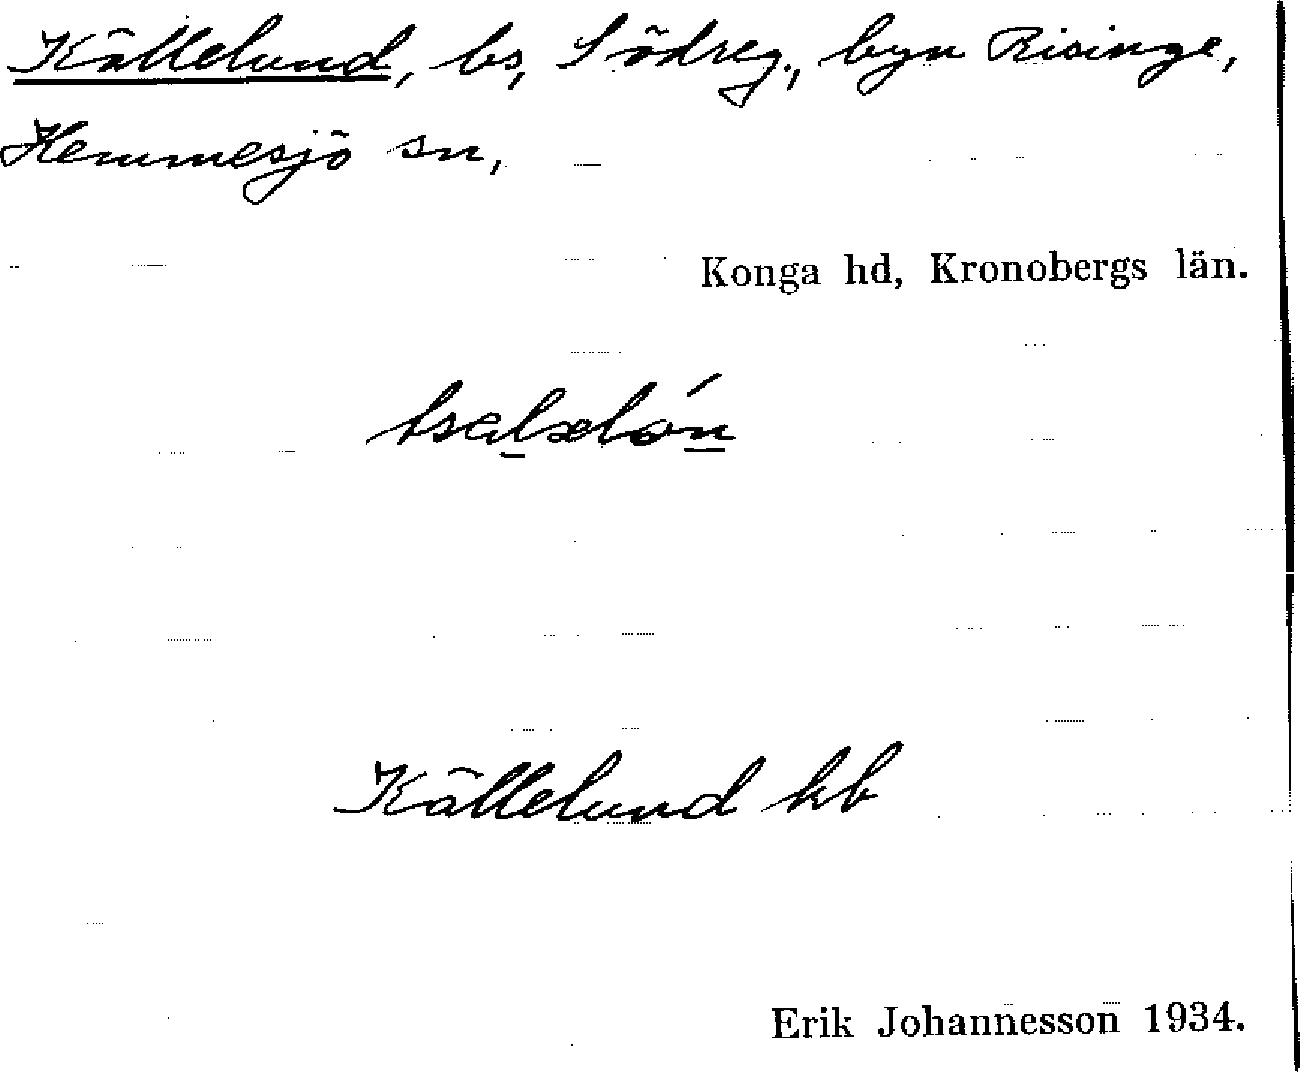 Källelund, bs, Södreg., byn Risinge,
Hemmesjö sn,
Konga hd, Kronobergs län.
Källelund kb
Erik Johannesson 1934.